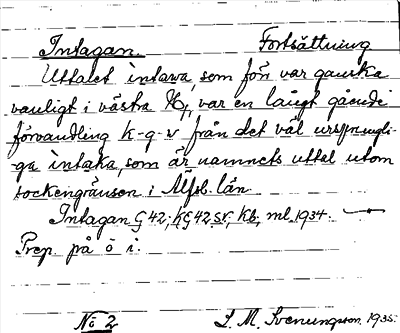 Intagan. Fortsättning
Uttalet intawa, som förr var ganska
vanligt i västra Hg, var en långt gående
förvandling k-g-v från det väl ursprungli-
ga intaka, som är namnets uttal utom
sockengränsen i Älfsb. län
Intagan G 42; KG 42 sr, Kb, ml. 1934.
Prep på ö i.
No 2 L. M. Svenungsson. 1935.